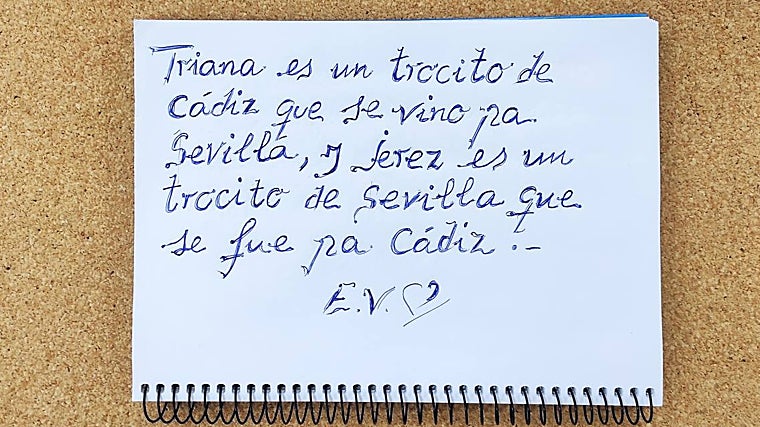 Triana es un trocito de
Cádiz que se vino pa
Sevilla, y Jerez es un
trocito de Sevilla que
se fue pa Cádiz.-
E.V.♡